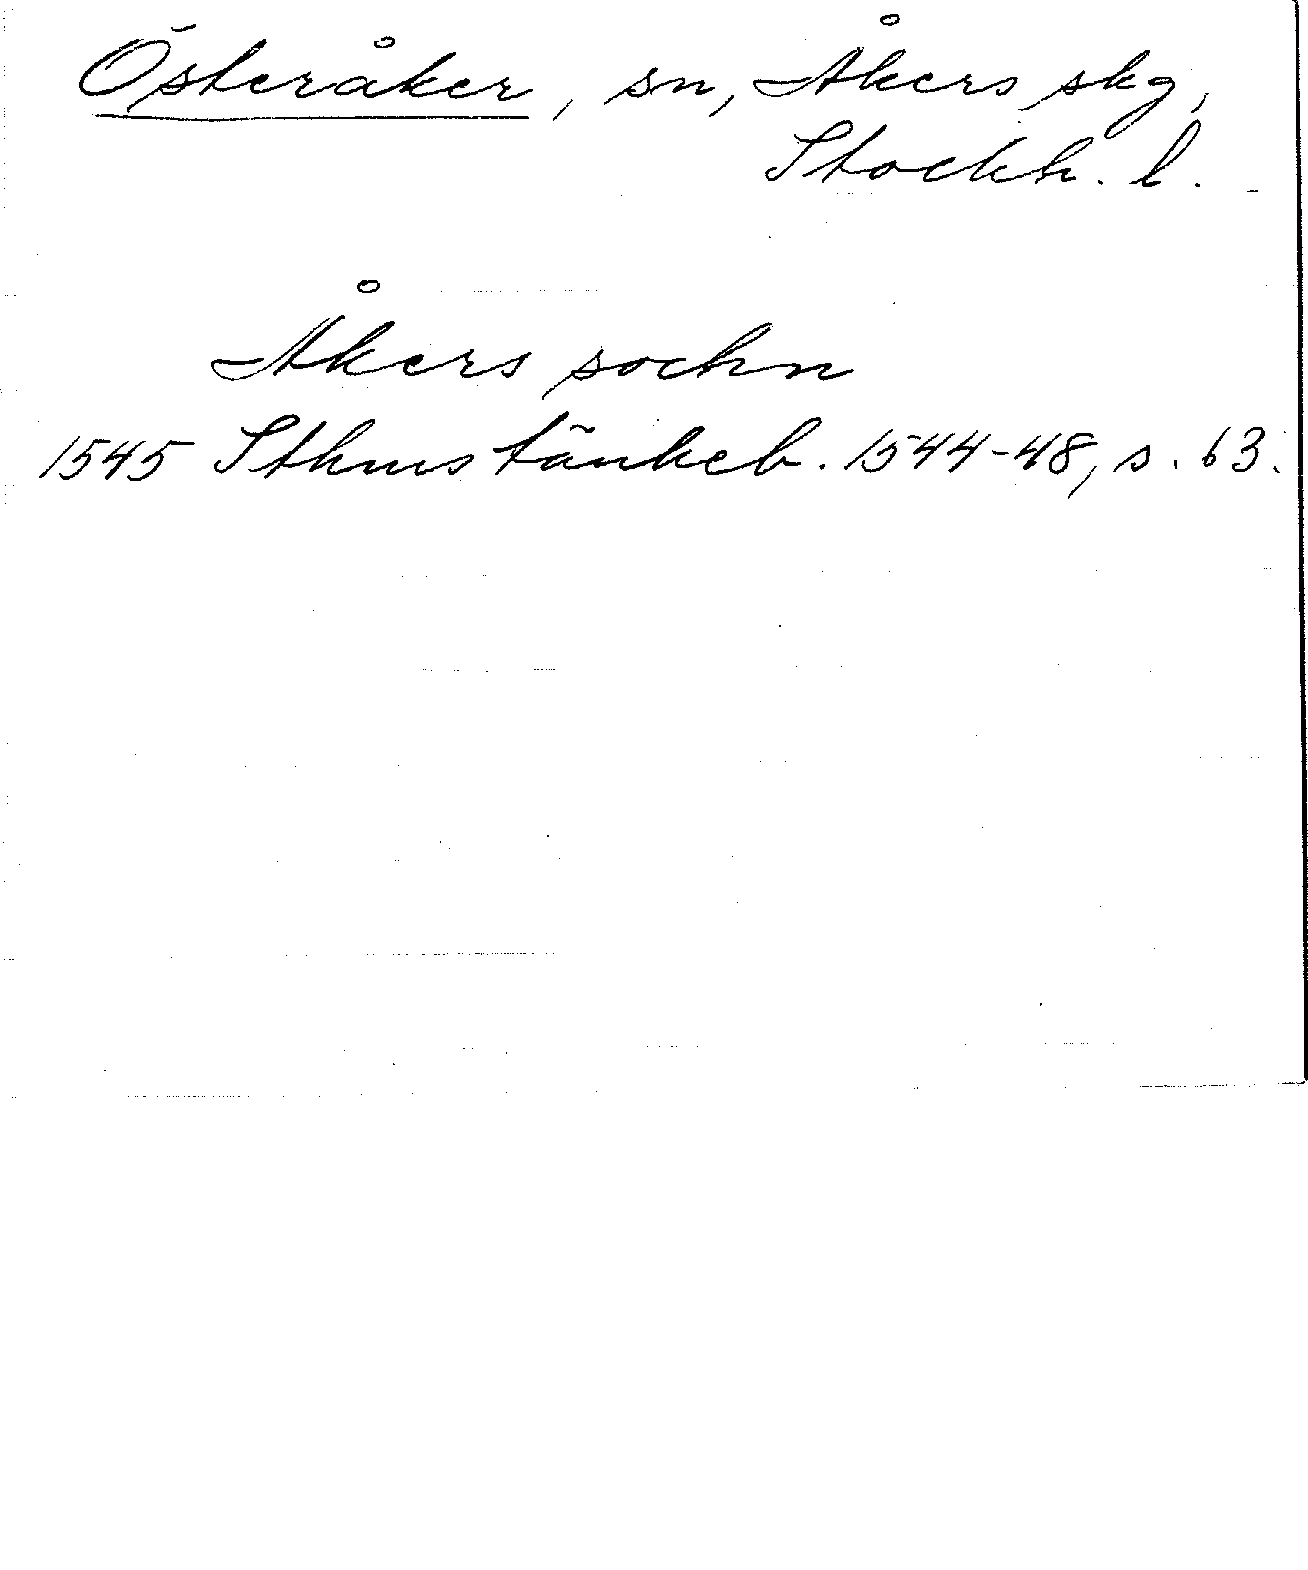 Österåker, sn, Åkers skg,
Stockh. l.
Åkers sochn
1545 Sthms tänkeb. 1544-48, s. 63.